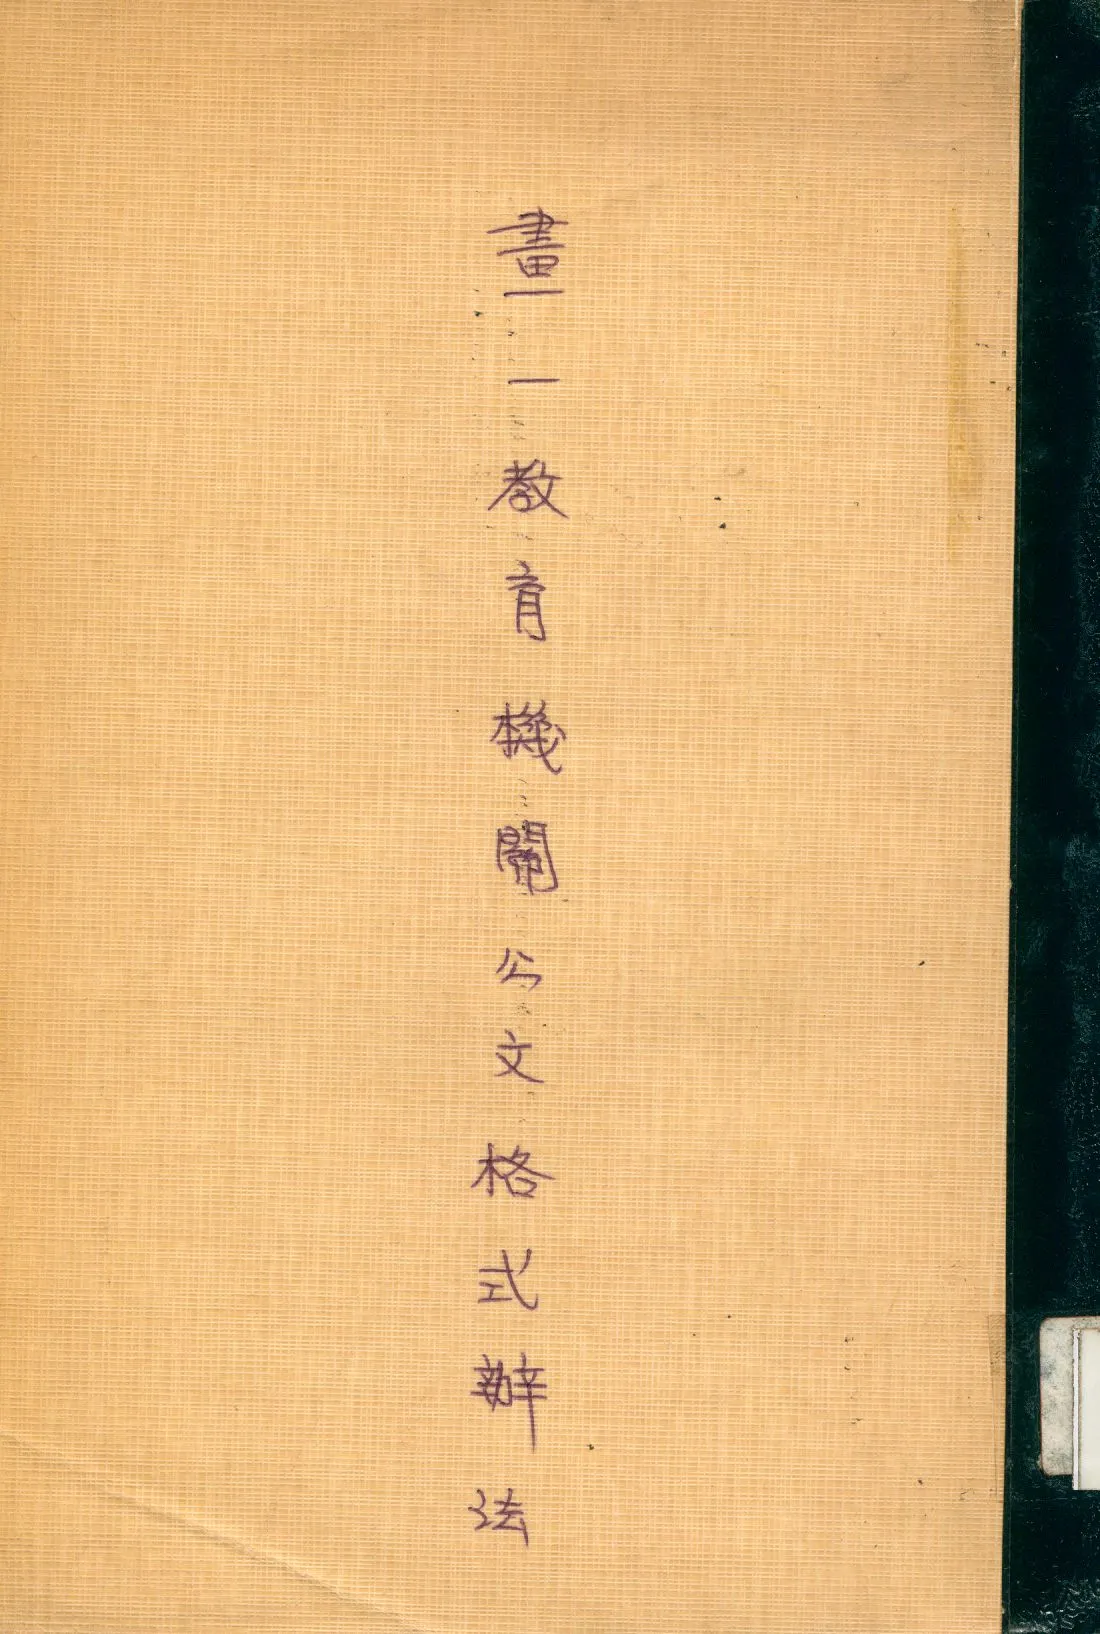 畫一教育機關公文格式辦法